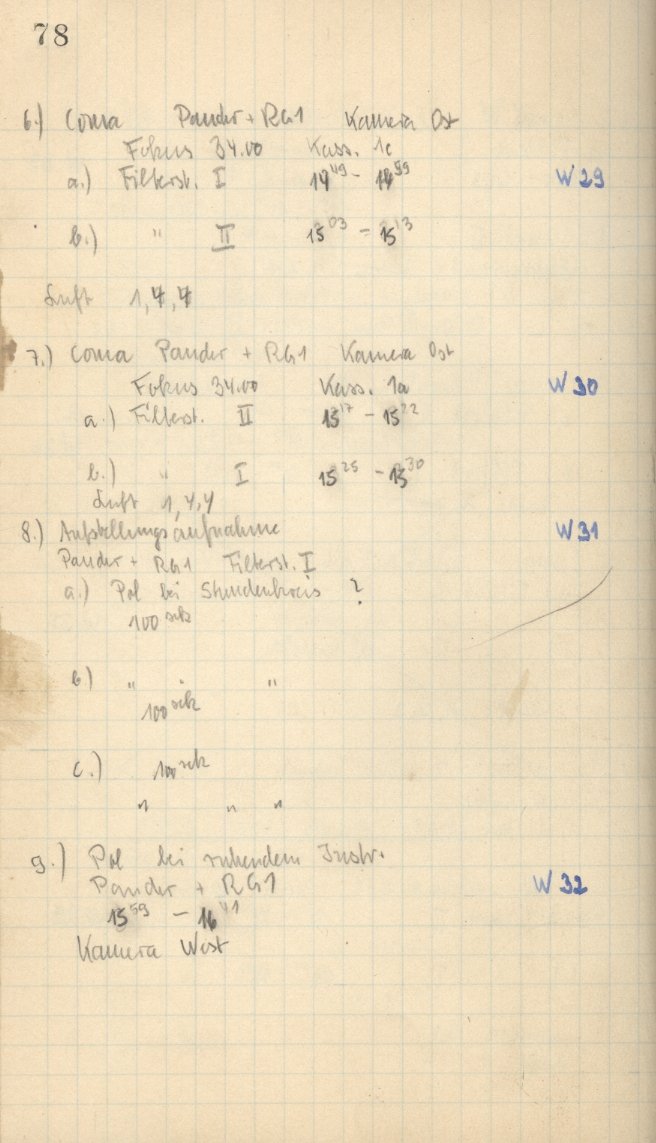 78
6.) Coma Pander + RG1 Kamera Ost
Fokus 34.00 Kass. 1c
a.) Filterst. I 14 49 - 14 59 W29
b.) " II 15 03 - 15 13
Luft 1,4,4
7.) Coma Pander + RG1 Kamera Ost
Fokus 34.00 Kass. 1a W30
a.) Filterst. II 15 17 - 15 22
b.) " I 15 25 - 15 30
Luft 1,4,4
8.) Aufstellungsaufnahme W31
Pander + RG1 Filterst. I
a.) Pol bei Stundenkreis ?
100 sek
b) " " "
100 sek
c.) 100 sek
" " "
9.) Pol bei ruhendem Instr.
Pander + RG1 W32
15 59 - 16 41
Kamera West